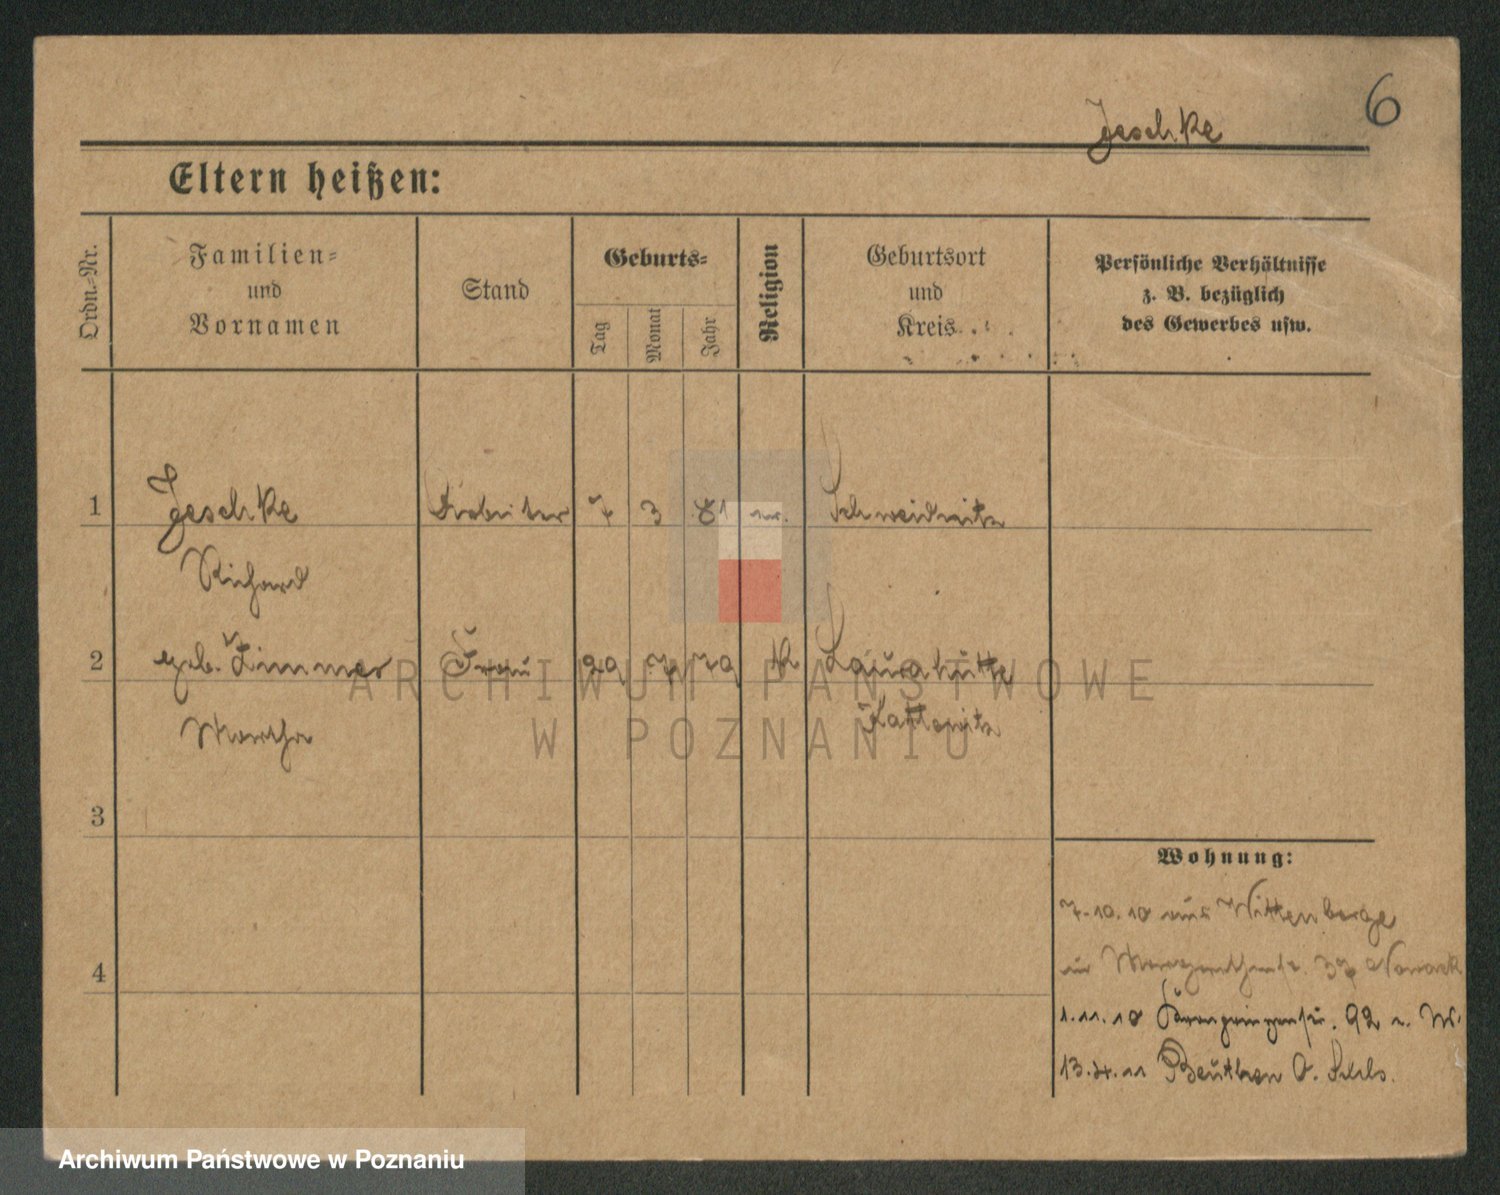 6
Jeschke
Eltern heißen:
Ordn.-Nr.
Familien-
und
Vornamen
Stand
Geburts-
Tag
Monat
Jahr
Religion
Geburtsort
und
Kreis
Persönliche Verhältnisse
z. B. bezüglich
des Gewerbes usw.
1 Jeschke Arbeiter 7 3 81 ev. Schweidnitz
Richard
2 geb. Zimmer Frau 29 7 79 k Laurahütte
Martha Kattowitz
3
4
Wohnung:
7.10.10 aus Wittenberge
in 37 Nowack
1.11.10 Kronprinzenstr. 92 b. W.
13.4.11 Beuthen O. Schls.
ARCHIWUM PAŃSTWOWE
W POZNANIU
Archiwum Państwowe w Poznaniu